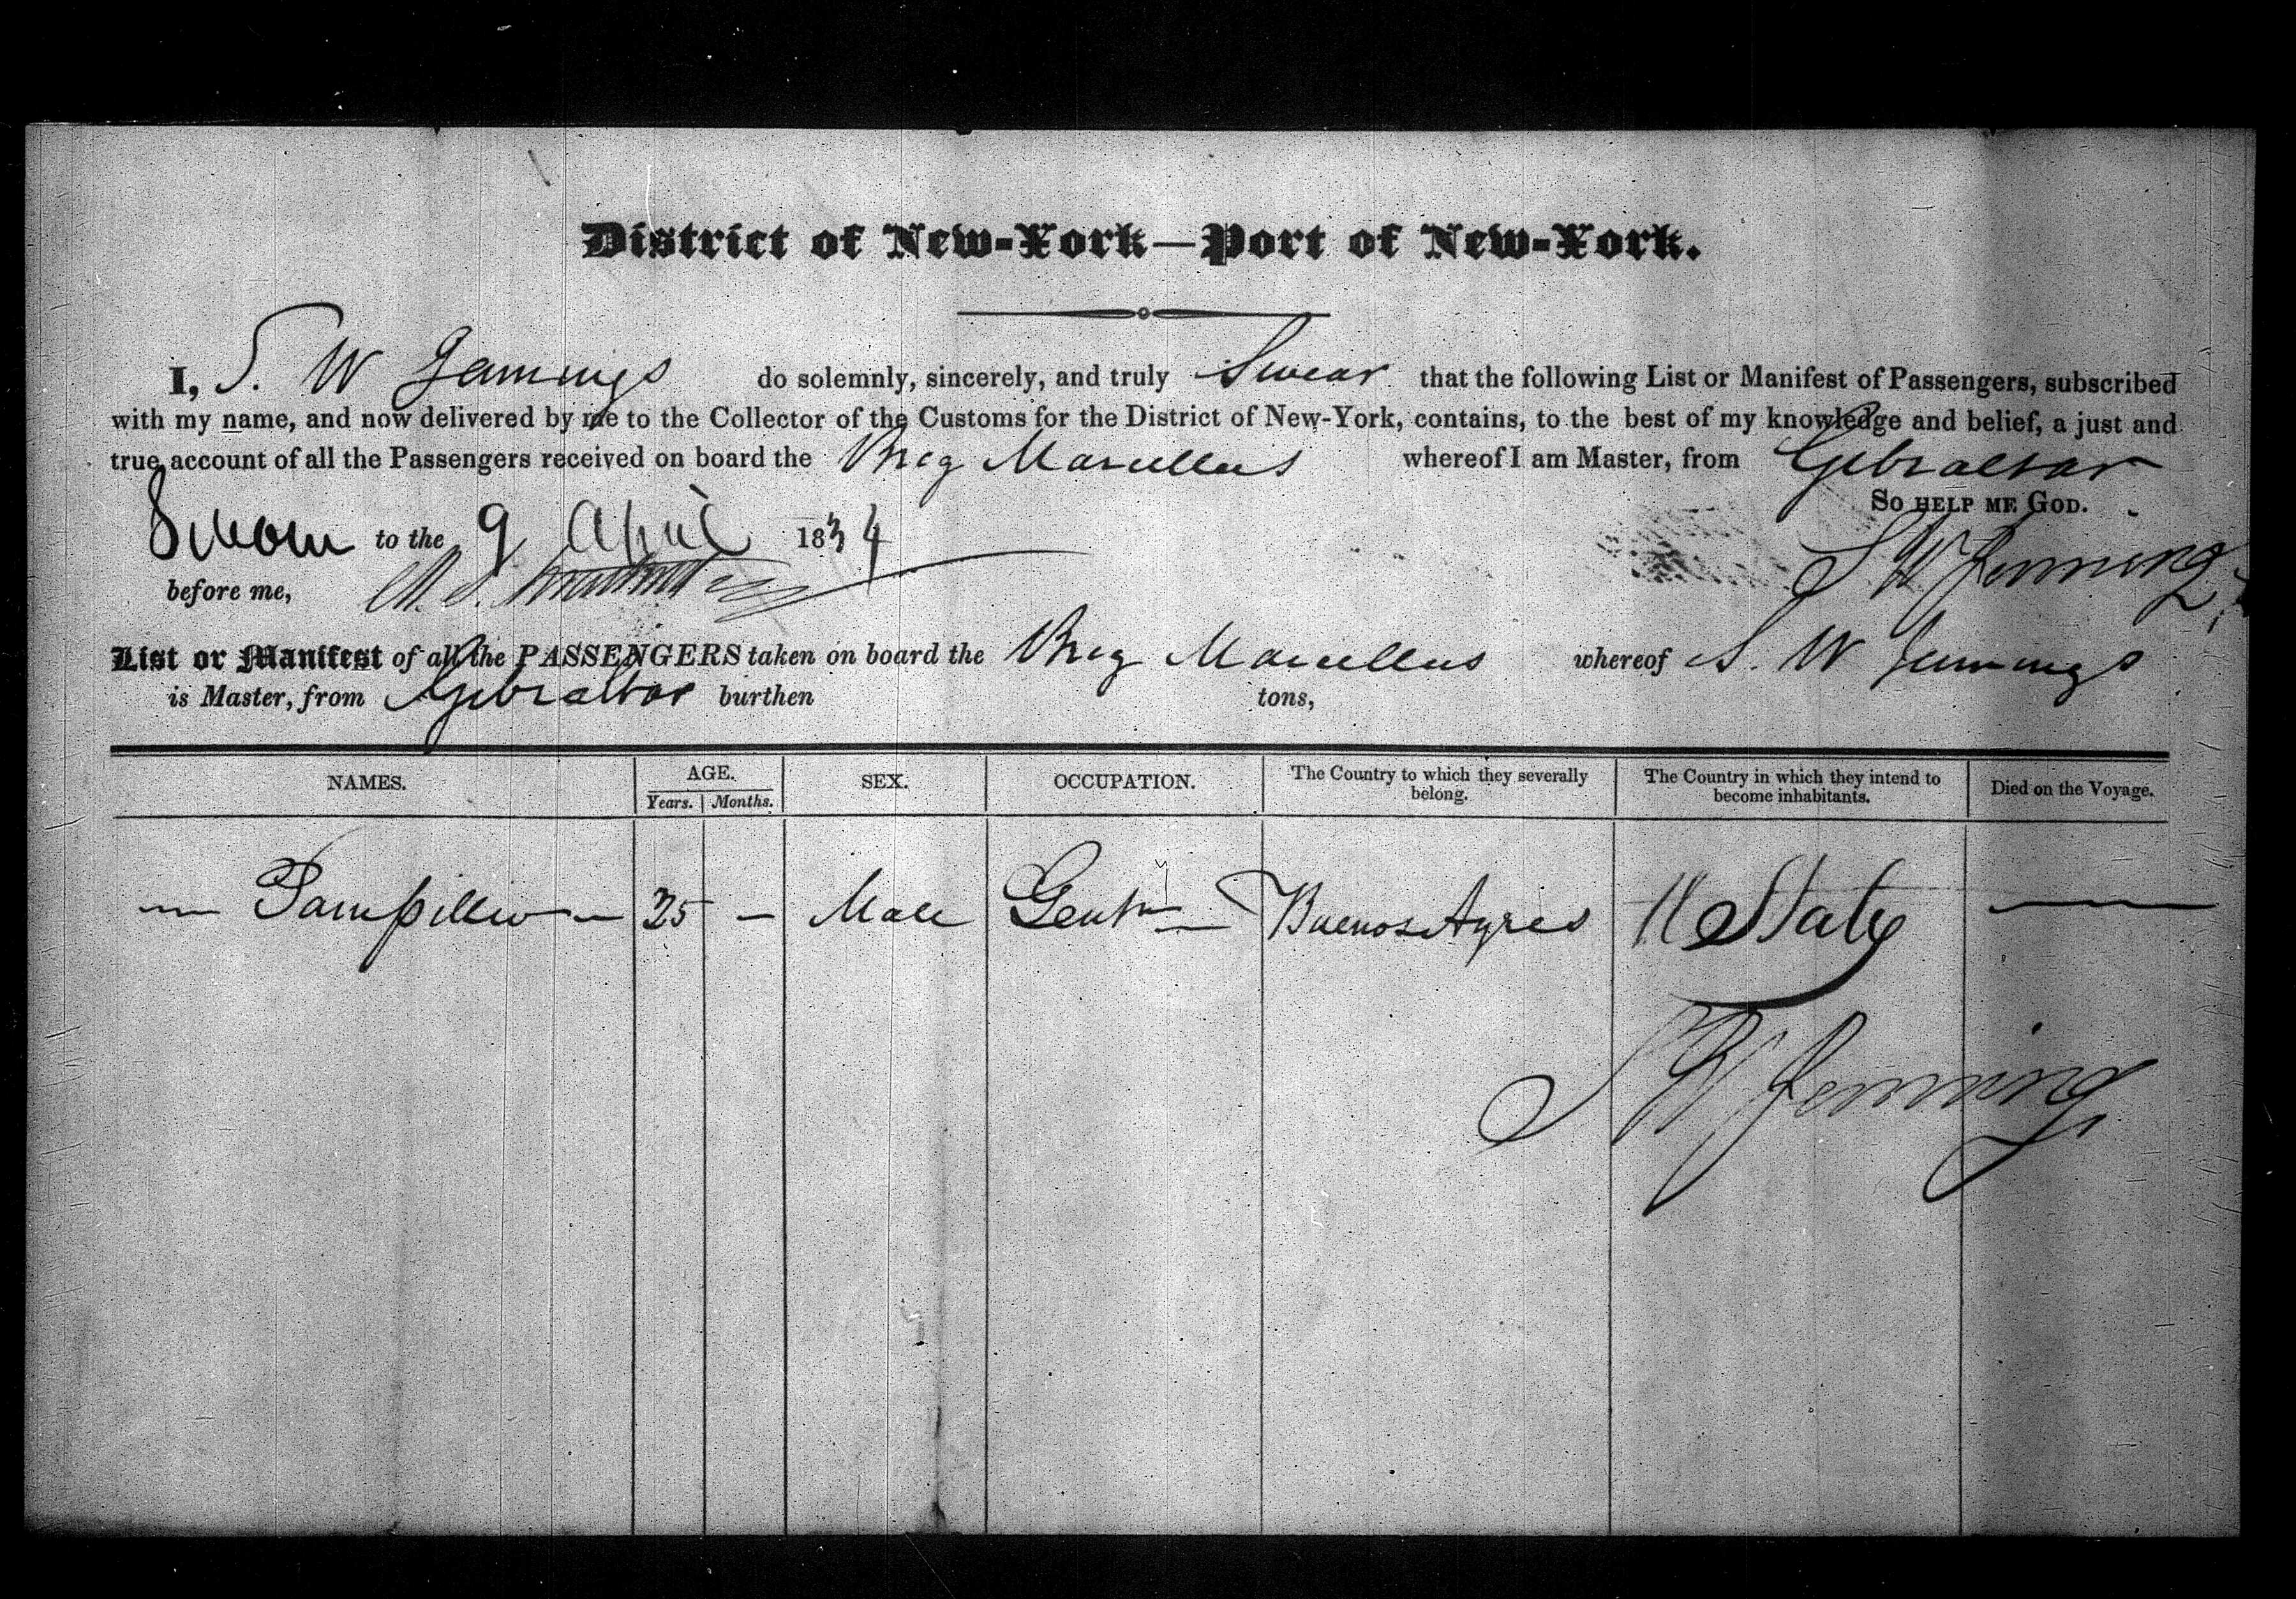 District of New-York—Port of New-York.
I, S. W Jennings do solemnly, sincerely, and truly Swear that the following List or Manifest of Passengers, subscribed
with my name, and now delivered by me to the Collector of the Customs for the District of New-York, contains, to the best of my knowledge and belief, a just and
true account of all the Passengers received on board the Brig Marcellus whereof I am Master, from Gibraltar
So help me God.
Sworn to the 9 April 1834
S W Jennings
before me,
List or Manifest of all the PASSENGERS taken on board the Brig Marcellus whereof S. W Jennings
is Master, from Gibraltar burthen tons,
NAMES. AGE. SEX. OCCUPATION. The Country to which they severally belong. The Country in which they intend to become inhabitants. Died on the Voyage.
Years. Months.
— 25 — Male Gentn Buenos Ayres U States —
S W Jennings